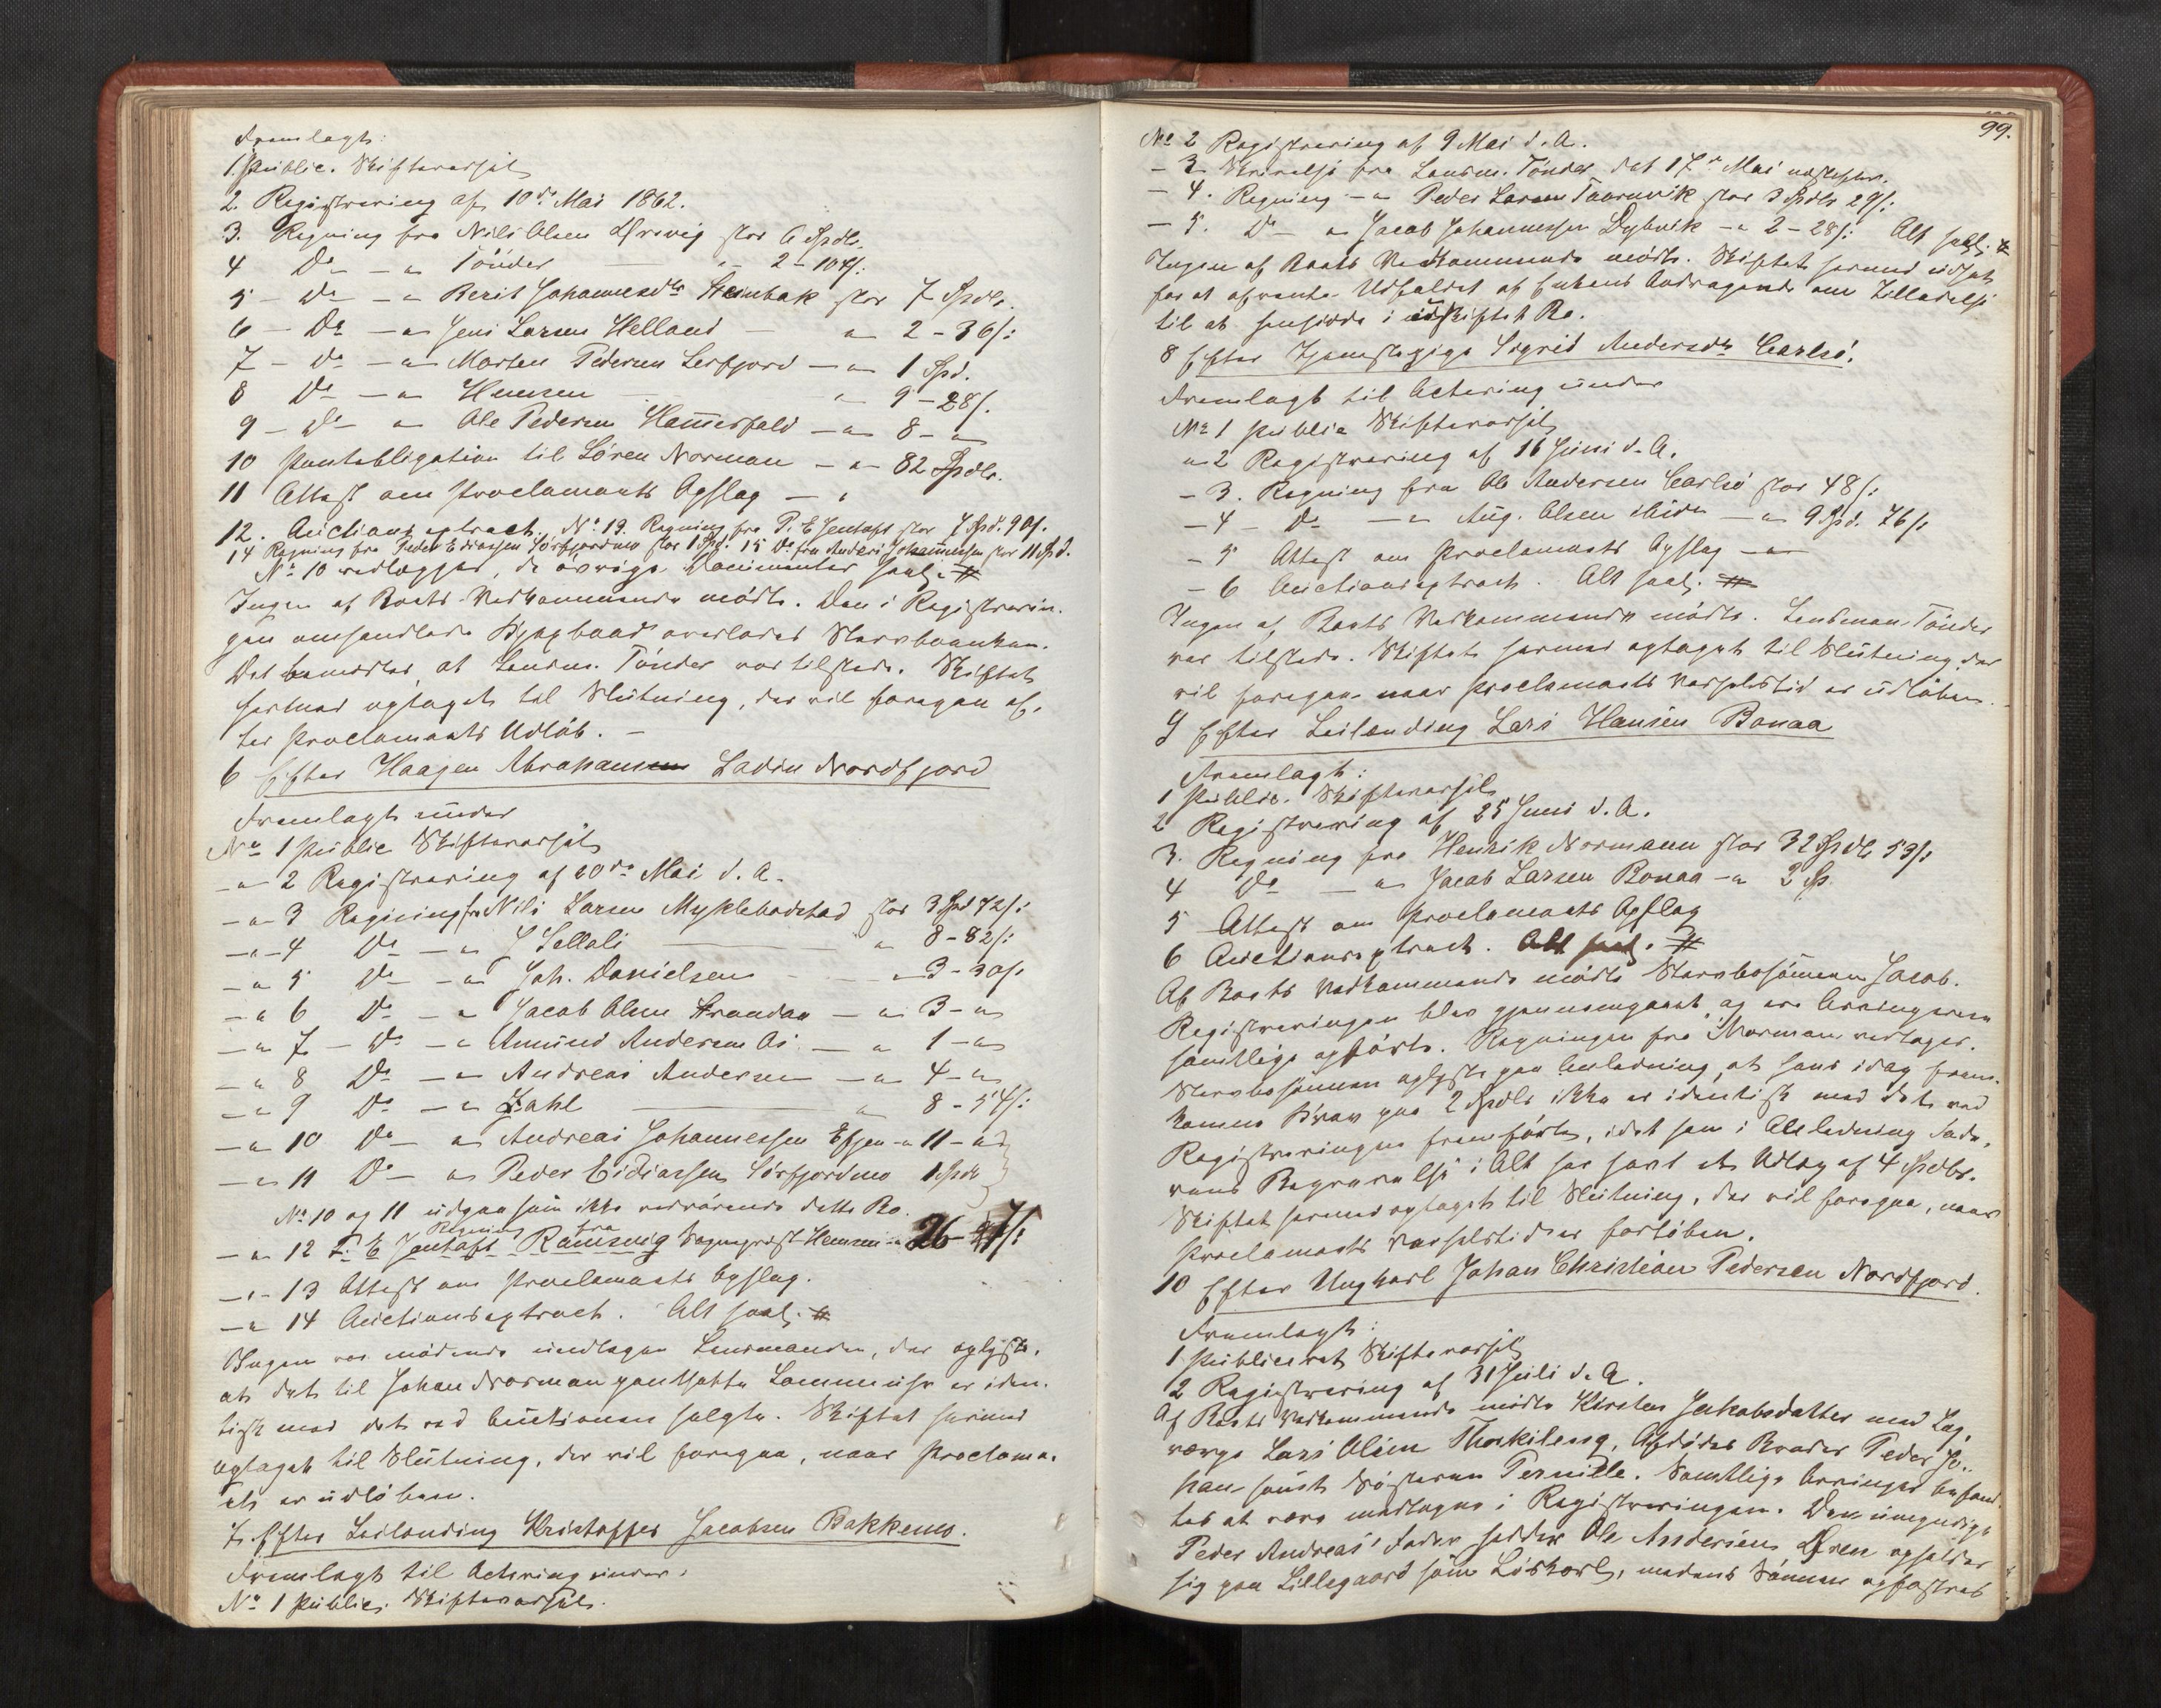 Fremlagt:
1. Public. Skiftevarsel
2. Registrering af 10de Mai 1862.
3. Regning fra Nils Olsen Ørsvig stor 6 Spdlr.
4 Do — " Tönder — " 2 - 104 s:
5 - Do — " Berit Johannesdtr Steinbak stor 7 Spdlr.
6 - Do — " Jens Larsen Helland " 2 - 36 s:
7 - Do — " Morten Pedersen Lerfjord — " 1 Spd.
8 Do — " Hemsen " 9 - 28 s.
9 - Do " Ole Pedersen Hammerfald — " 8 - "
10 Pantobligation til Sören Norman — " - 82 Spdlr.
11 Attest om Proclamaets Opslag — "
12. Auctionsextract, No 13. Regning fra P. E Jentoft stor 7 Spd. 90 s.
14 Regning fra Peder Ediassen Sörfjordmo stor 1 Spd. 15 Do fra Anders Johannessen stor 11 Spd.
No 10 vedlægges, de övrige Documenter saal. #
Ingen af Boets Vedkommende mödte. Den i Registrerin-
gen omhandlede Kjøpbaad overlodes Stervboenken.
Det bemærkes, at Lensm. Tönder var tilstede. Skiftet
hermed optaget til Slutning, der vil foregaa ef-
ter Proclamaets Udløb. —
6 Efter Haagen Abrahamsen Ladsu Nordfjord
Fremlagt under
No 1 Public Skiftevarsel
— " 2 Registrering af 20de Mai d. A.
— " 3 Regning fra Nils Larsen Myklebostad stor 3 Spd 72 s:
— " 4 Do — " J Jellali " 8 - 82 s:
— " 5 Do — " Joh. Danielsen — " 3 - 30 s.
— " 6 Do — " Jacob Olsen Strandaa — " 3 - "
— " 7 - Do — " Amund Andersen As — " 1 - "
— " 8 Do — " Andreas Andersen — " 4 - "
— " 9 Do — " Zahl " 8 - 54 s:
— " 10 Do " Andreas Johannessen Efjen - " 11 - "
— " 11 Do " Peder Ediassen Sörfjordmo 1 Spdlr
No 10 og 11 udgaa som ikke vedrörende dette Bo.
— " 12 P. E Jentoft Ramsvig Regning fra Sogneprest Hemsen " 26 - s:
— " 13 Attest om Proclamaets Opslag.
— " 14 Auctionsextract. Alt saal. #
Ingen var mødende undtagen Lensmanden, der oplyste,
at det til Johan Norman pantsatte Lommeuhr er iden-
tisk med det ved Auctionen solgte. Skiftet hermed
optaget til Slutning, der vil foregaa, naar Proclama-
ets er udløben.
7. Efter Leilænding Kristoffer Jacobsen Bakkemo.
Fremlagt til Actering under.
No 1 Public. Skiftevarsel.
99.
No 2 Registrering af 9 Mai d. A.
- 3 Skrivelse fra Lensm. Tönder, dat 17de Mai næstefter.
- 4. Regning — " Peder Larsen Taarnvik stor 3 Spdlr 29 s:
- 5. Do — " Jacob Johannessen Dybvik — " 2 - 28 s: Alt saal. #
Ingen af Boets Vedkommende mödte. Skiftet hermed udsat
for at afvente Udfaldet af Enkens Andragende om Tilladelse
til at hensidde i uskiftet Bo.
8 Efter Tjenestepige Sigrid Andersdtr Carlsö.
Fremlagt til Actering under
No 1 Public Skiftevarsel
" 2 Registrering af 16 Juni d. A.
- 3. Regning fra Ole Andersen Carlsö stor 48 s:
- 4 - Do — " Aug. Olsen ibid. — " 9 Spd. 76 s:
- 5 Attest om Proclamaets Opslag — "
- 6 Auctionsextract. Alt saal. #
Ingen af Boets Vedkommende mödte. Lensmand Tönder
var tilstede. Skiftet hermed optaget til Slutning, der
vil foregaa naar Proclamaets Varselstid er udløben.
9 Efter Leilænding Lars Hansen Bonaa
Fremlagt:
1 Public. Skiftevarsel
2 Registrering af 25 Juni d. A.
3. Regning fra Henrik Normann stor 32 Spdlr 53 s:
4 Do — " Jacob Larsen Bonaa — " 2 Sp.
5 Attest om Proclamaets Opslag
6 Auctionsextract. Alt saal. #
Af Boets Vedkommende mödte Stervbosönnen Jacob.
Registreringen blev gjennemgaaet og ere Arvingerne
samtlige opførte. Regningen fra Norman vedtoges.
Stervbosönnen oplyste paa Anledning, at hans idag frem-
komne Krav paa 2 Spdlr ikke er identisk med det ved
Registreringen fremførte, idet han i Anledning Fade-
rens Begravelse i Alt har havt et Udlæg af 4 Spdlr.
Skiftet hermed optaget til Slutning, der vil foregaa, naar
Proclamaets Varselstid er forløben.
10 Efter Ungkarl Johan Christian Pedersen Nordfjord.
Fremlagt:
1. Publiceret Skiftevarsel
2 Registrering af 31 Juli d. A.
Af Boets Vedkommende mødte Kirsten Jakobsdatter med Lag-
værge Lars Olsen Thorkilseng, Afdødes Broder Peder Jo-
han samt Søsteren Pernille. Samtlige Arvinger befand-
tes at være medtagne i Registreringen. Den umyndige
Peder Andreas' Fader hedder Ole Andersen Øren opholder
sig paa Lillegaard som Løskarl, medens Sønnen opfostres